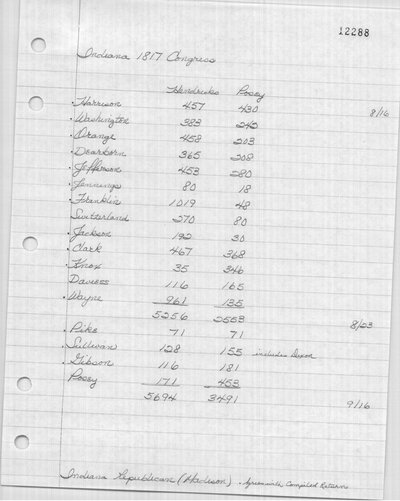 12288
Indiana 1817 Congress
Hendricks Posey
. Harrison 457 430 8/16
. Washington 383 242
. Orange 458 203
. Dearborn 365 208
. Jefferson 453 280
. Jennings 80 18
. Franklin 1019 48
Switzerland 270 80
. Jackson 192 30
. Clark 467 368
. Knox 35 346
Daviess 116 165
. Wayne 961 135
5256 2553
8/23
. Pike 71 71
. Sullivan 128 155 includes
. Gibson 116 181
Posey 171 453
5694 3491
9/16
Indiana Republican (Madison) . Agrees with Compiled Returns